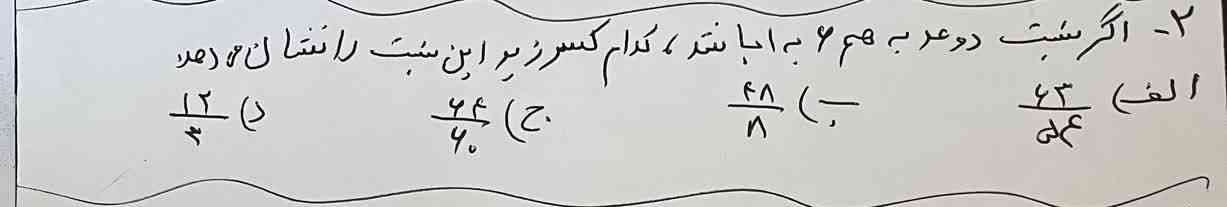 ۲- اگر نسبت دو عدد به هم ۶ به ۱ باشد، کدام کسر زیر این نسبت را نشان می‌دهد
الف) ۶۳/۴۵ ب) ۴۸/۸ ج) ۶۴/۶۰ د) ۱۲/۳